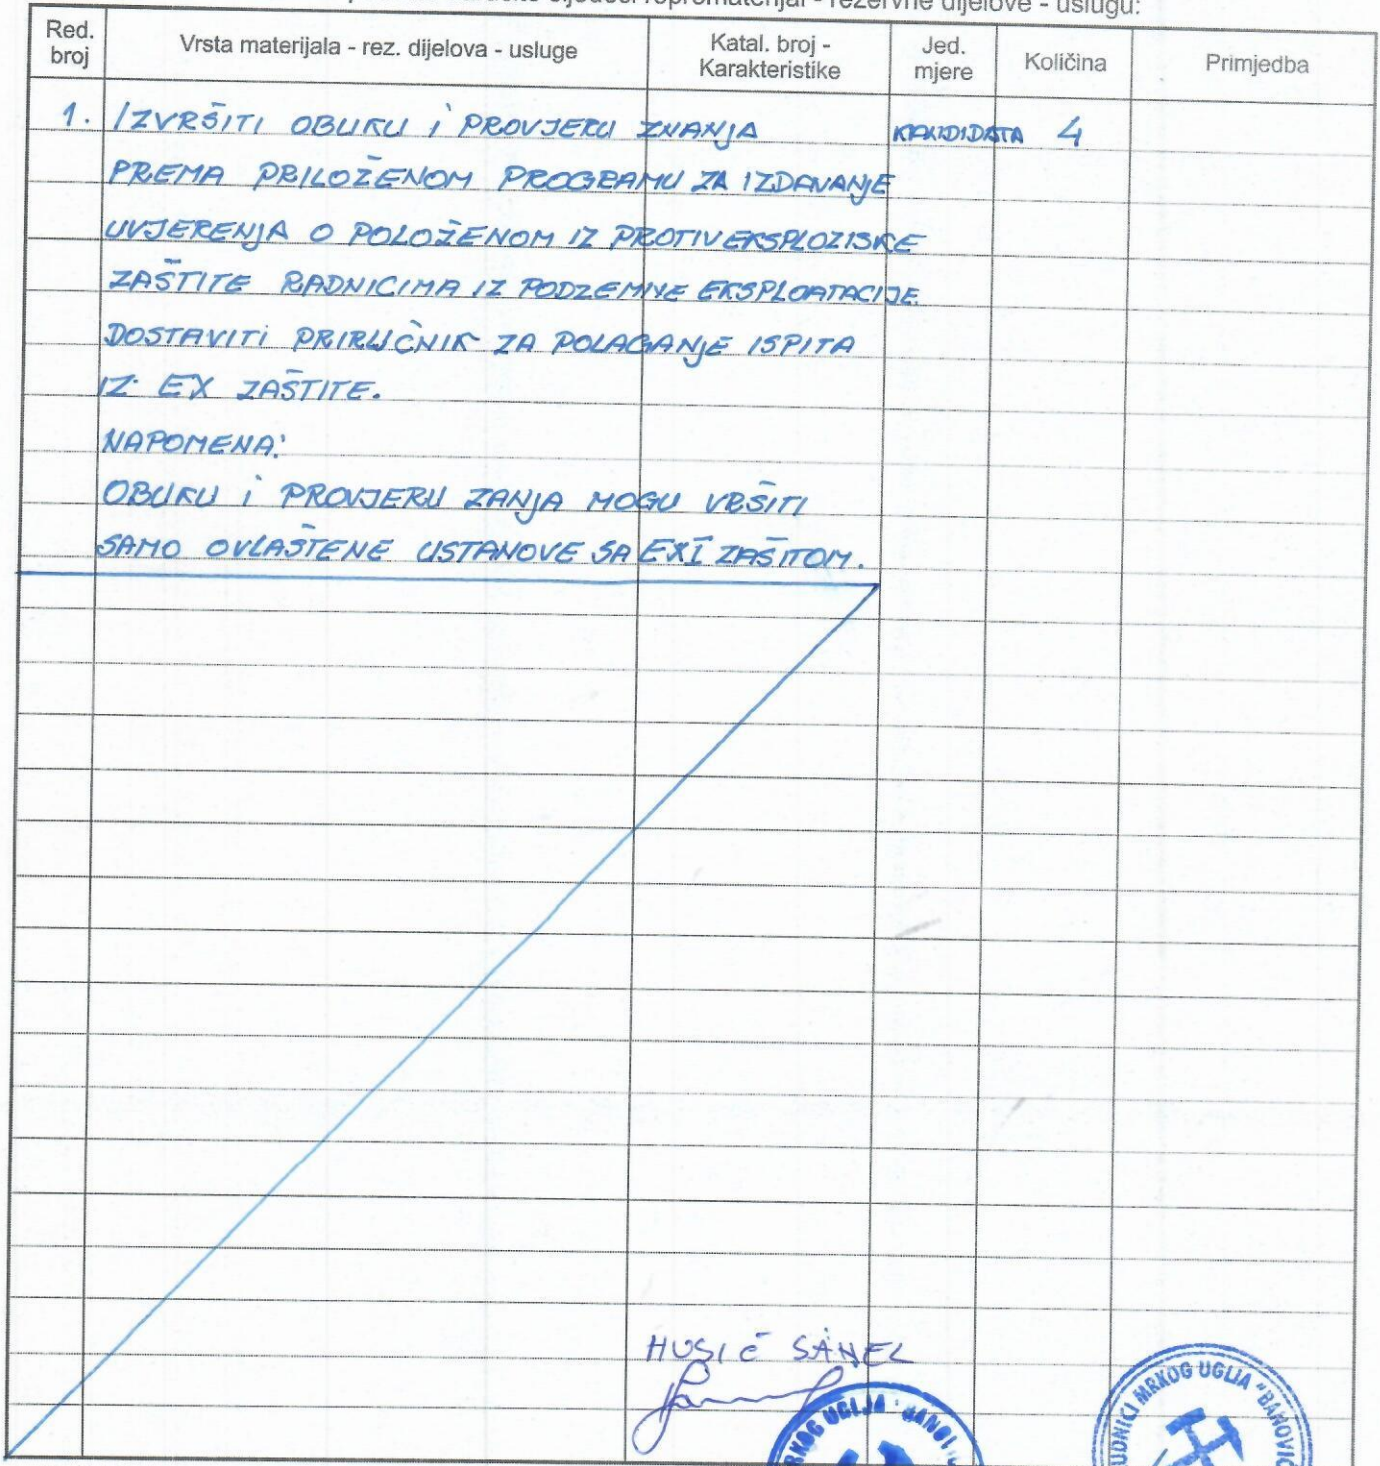 repromaterijal - rezervne dijelove - uslugu:
Red. broj
Vrsta materijala - rez. dijelova - usluge
Katal. broj - Karakteristike
Jed. mjere
Količina
Primjedba
1. IZVRŠITI OBUKU i PROVJERU ZNANJA KANDIDATA 4
PREMA PRILOŽENOM PROGRAMU ZA IZDAVANJE
UVJERENJA O POLOŽENOM IZ PROTIVEKSPLOZISKE
ZAŠTITE RADNICIMA IZ PODZEMNE EKSPLOATACIJE.
DOSTAVITI PRIRUČNIK ZA POLAGANJE ISPITA
IZ EX ZAŠTITE.
NAPOMENA:
OBUKU i PROVJERU ZANJA MOGU VRŠITI
SAMO OVLAŠTENE USTANOVE SA EXI ZAŠITOM.
HUSIĆ SANEL
UGLJA
MRKOG UGLJA "BANOVIĆ